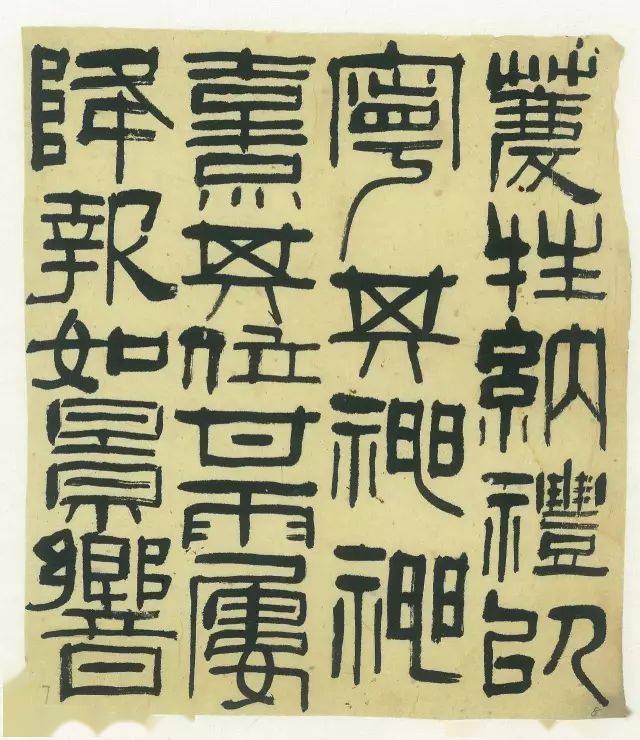 薦牲納禮以
寧其神神
熹其位甘雨屢
降報如景響
8
7